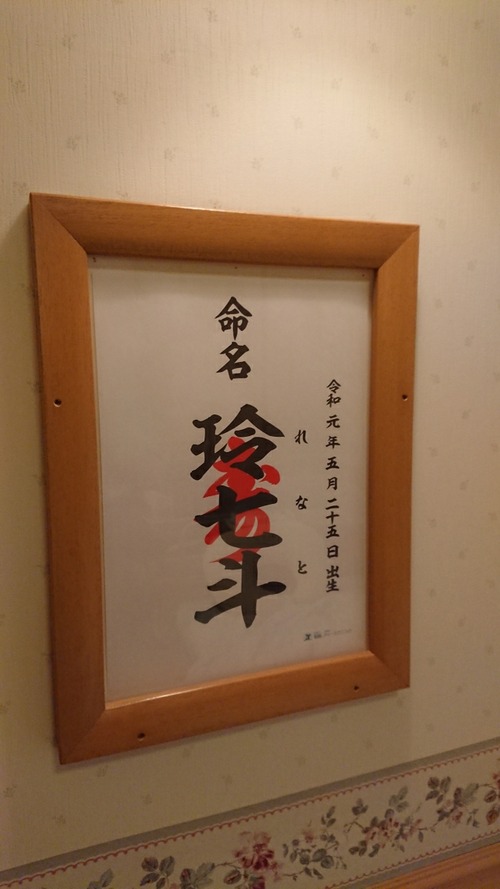 令和元年五月二十五日出生
命名
玲七斗
れなと